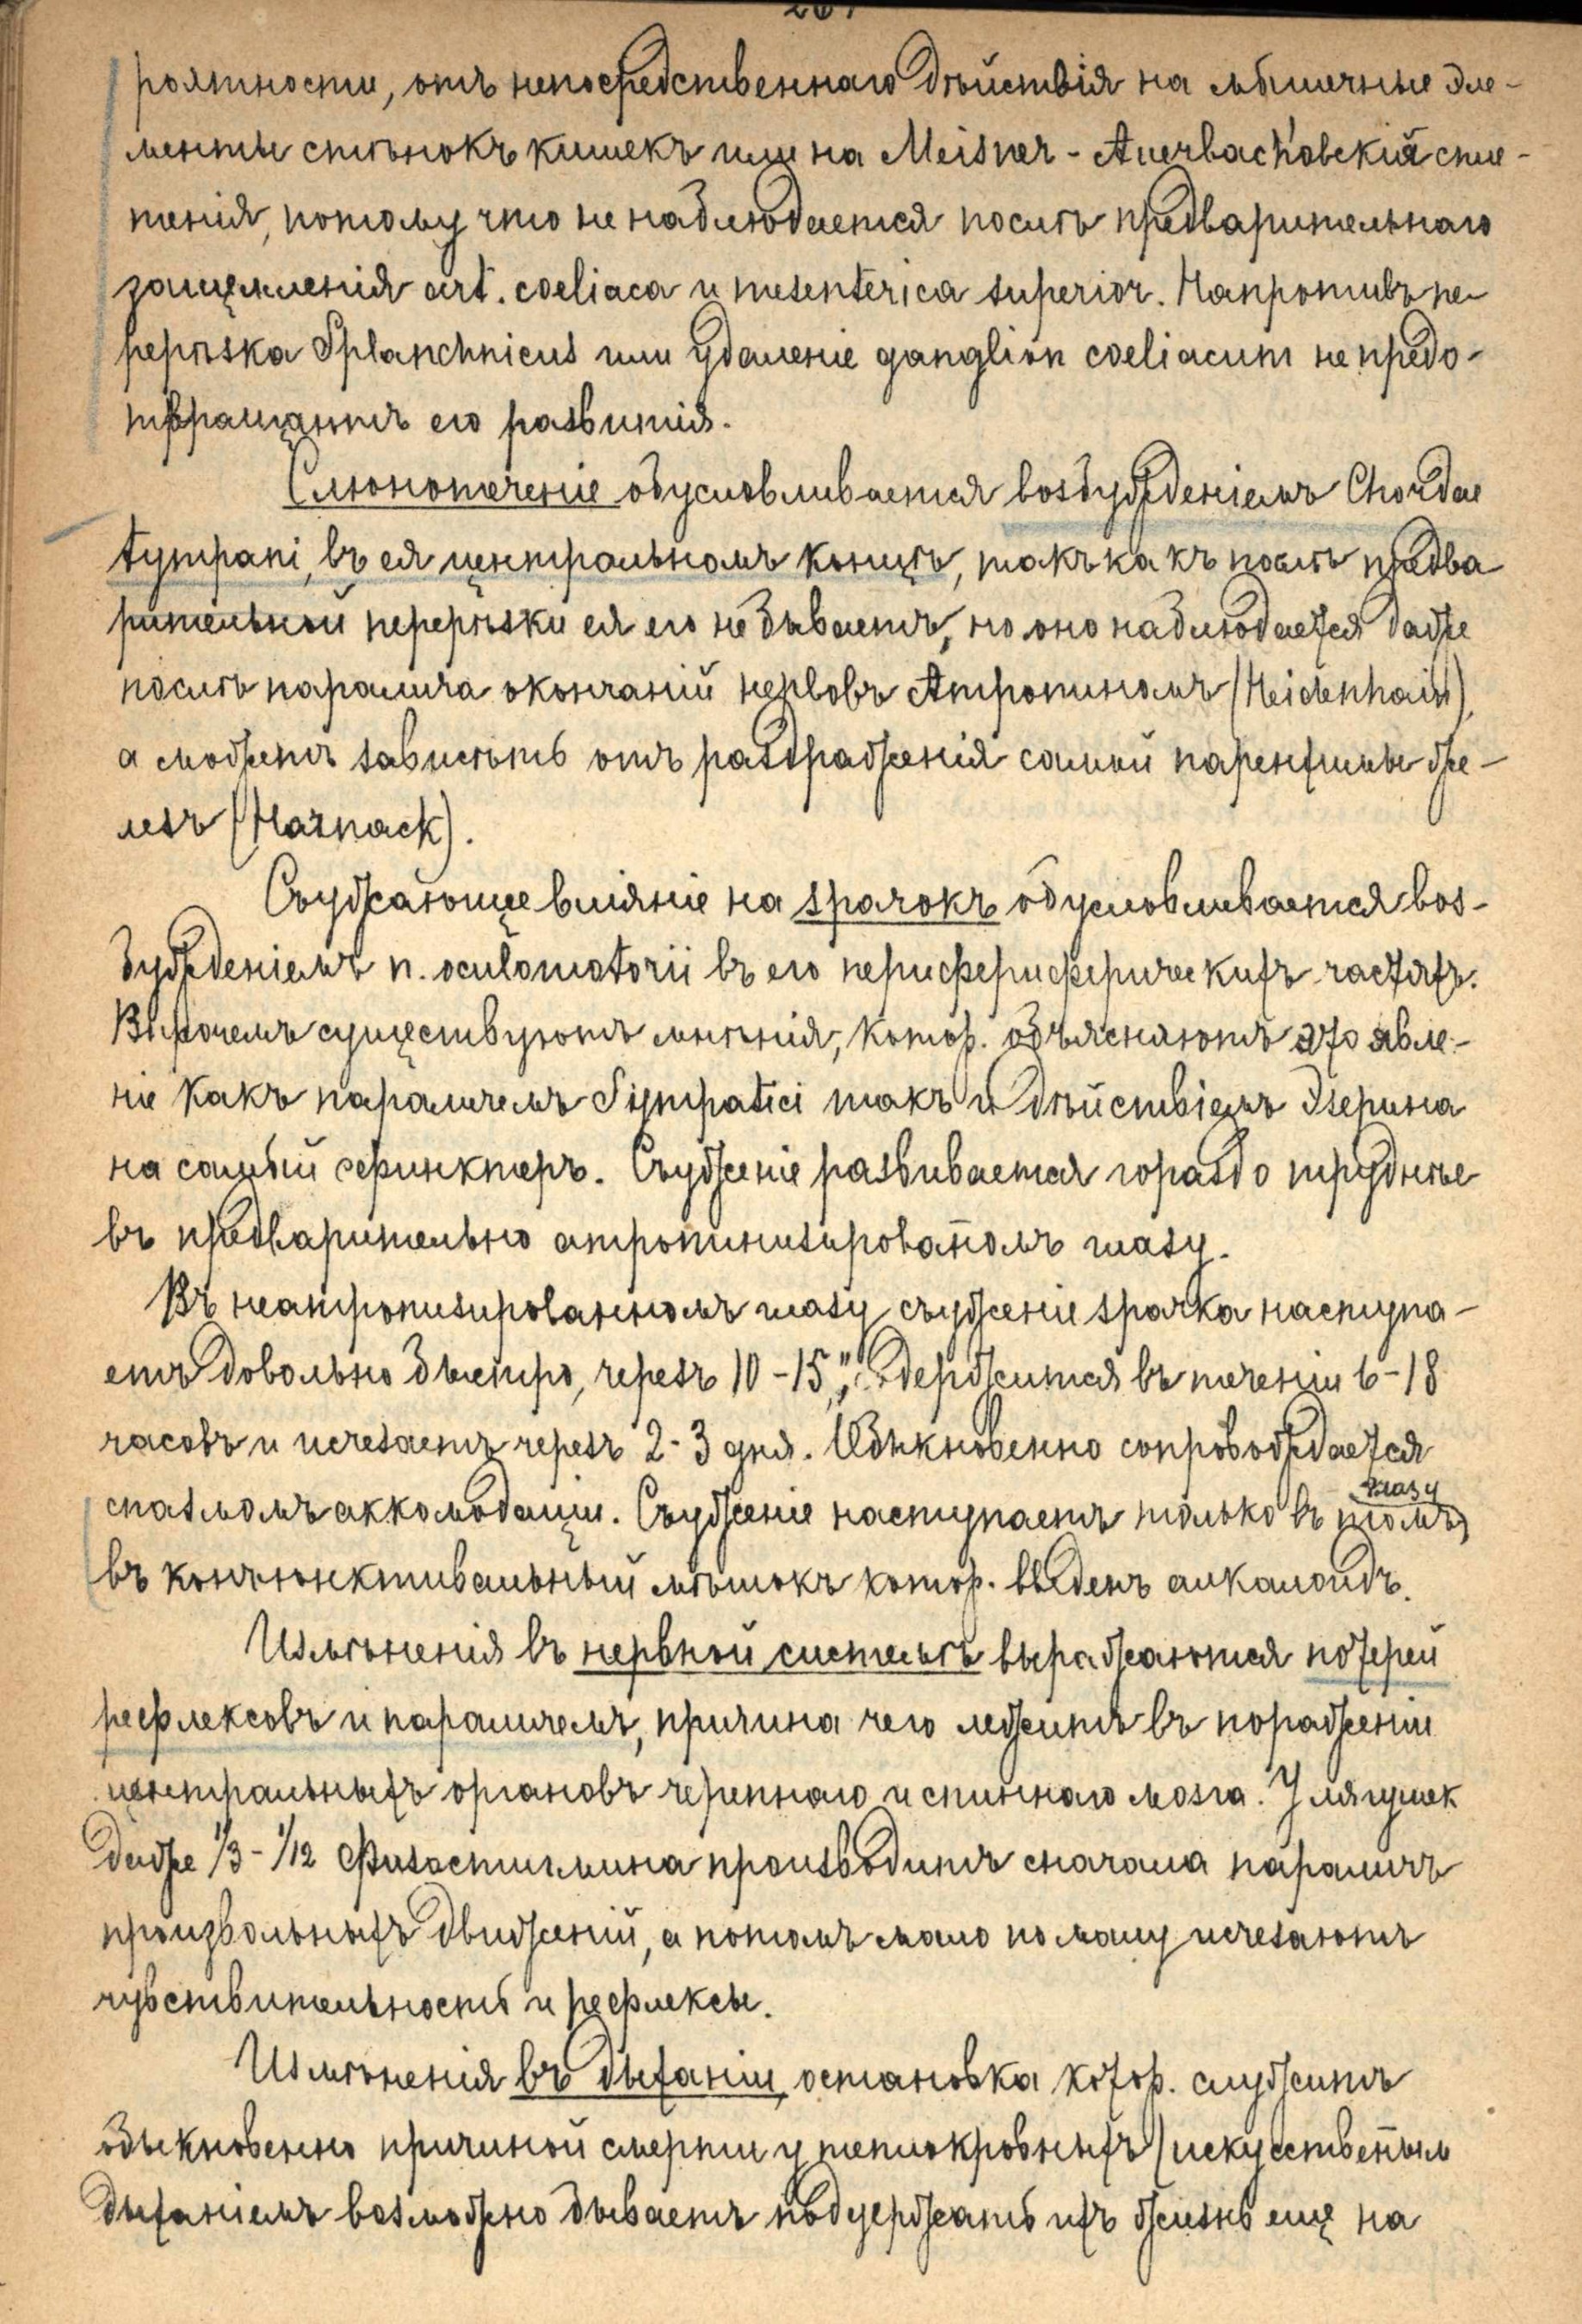 роятности, отъ непосредственнаго дѣйствія на мышечные эле-
менты стѣнокъ кишекъ или на Meisner-Auerbach'овскія спле-
тенія, потому что не наблюдается послѣ предварительнаго
защемленія art. coeliaca и mesenterica superior. Напротивъ пе-
рерѣзка Splanchnicus или удаленіе ganglion coeliacum не предо-
твращаютъ его развитія.
Слюнотеченіе обусловливается возбужденіемъ Chordae
tympani, въ ея центральномъ концѣ, такъ какъ послѣ предва
рительной перерѣзки ея его не бываетъ, но оно наблюдается даже
послѣ паралича окончаній нервовъ Атропиномъ (Heidenhain),
а можетъ зависѣть отъ раздраженія самой паренхимы же-
лезъ (Harnack).
Съужающее вліяніе на зрачокъ обусловливается воз-
бужденіемъ n. oculomotorii въ его перисферисферическихъ частяхъ.
Впрочемъ существуютъ мнѣнія, котор. объясняютъ это явле-
ніе какъ параличемъ Sympatici такъ и дѣйствіемъ Эзерина
на самый сфинктеръ. Съуженіе развивается гораздо труднѣе
въ предварительно атропинизированомъ глазу.
Въ неатропизированномъ глазу съуженіе зрачка наступа-
етъ довольно быстро, черезъ 10-15", держится въ теченіи 6-18
часовъ и исчезаетъ черезъ 2-3 дня. Обыкновенно сопровождается
спазмомъ аккомодаціи. Съуженіе наступаетъ только въ томъ глазу
въ конъюнктивальный мѣшокъ котор. введенъ алкалоидъ.
Измѣненія въ нервной системѣ выражаются потерей
рефлексовъ и параличемъ, причина чего лежитъ въ пораженіи
центральныхъ органовъ черепнаго и спиннаго мозга. У лягушек
даже 1/3-1/12 Физостигмина производитъ сначала параличъ
произвольныхъ движеній, а потомъ мало по малу исчезаютъ
чувствительность и рефлексы.
Измѣненія въ дыханіи, остановка котор. служитъ
обыкновенно причиной смерти у теплокровныхъ (искусственым
дыханіемъ возможно бываетъ поддержать ихъ жизнь еще на